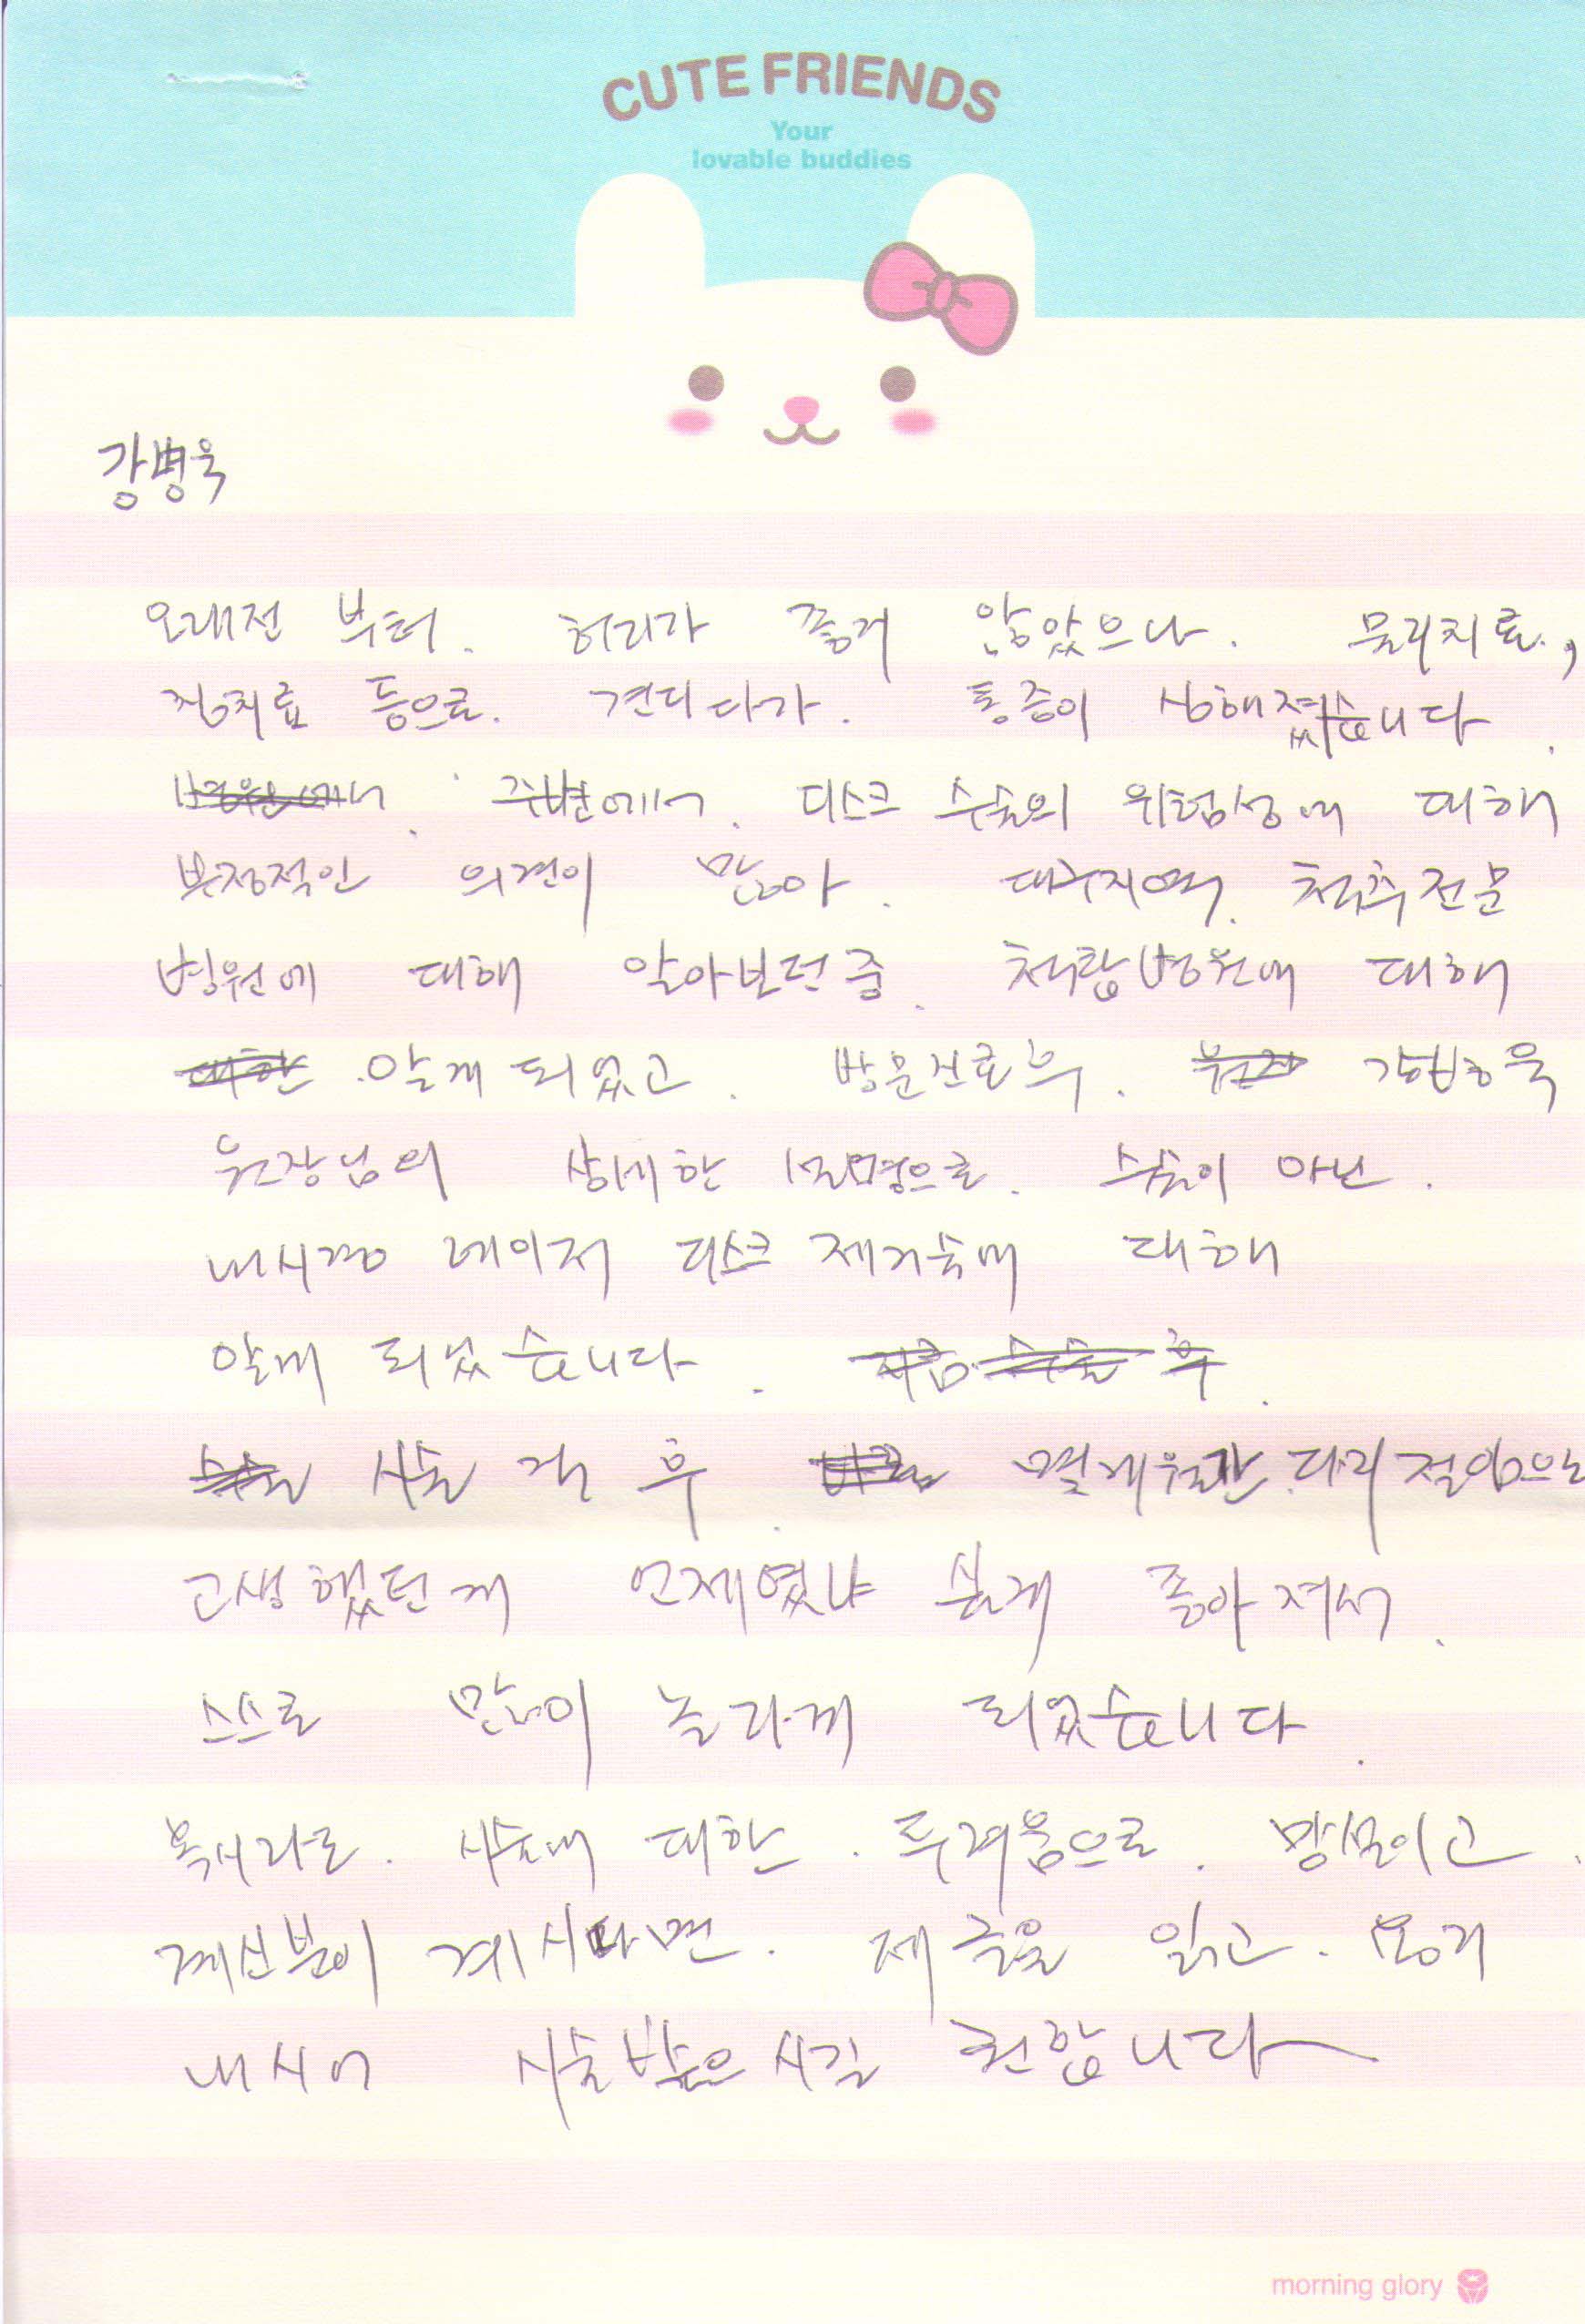 CUTE FRIENDS
Your
lovable buddies
강병욱
오래전 부터. 허리가 좋지 않았으나. 물리치료,
침치료 등으로. 견디다가. 통증이 심해졌습니다.
병원에서. 주변에서. 디스크 수술의 위험성에 대해
부정적인 의견이 많아. 대구지역. 척추전문
병원에 대해 알아보던중. 척탑병원에 대해
대한 알게 되었고. 방문진료후. 원장 강병욱
원장님의 상세한 설명으로. 수술이 아닌.
내시경 레이저 디스크 제거술에 대해
알게 되었습니다. 지금 수술 후.
수술 시술 직 후 몇개월간 다리 저림으로
고생했던게 언제였냐 싶게 좋아져서.
스스로 많이 놀라게 되었습니다.
혹시라도. 시술에 대한. 두려움으로. 망설이고.
계신분이 계시다면. 제 글을 읽고. 용기
내시어 시술받으시길 권합니다
morning glory